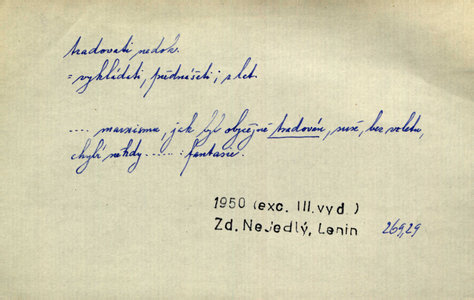 tradovati nedok.
= vykládati, přednášeti; z lat.
.... marxismu, jak byl obyčejně tradován, suše, bez vzletu,
chybí někdy ...... : fantasie.
1950 (exc. III. vyd.)
Zd. Nejedlý, Lenin 269,29